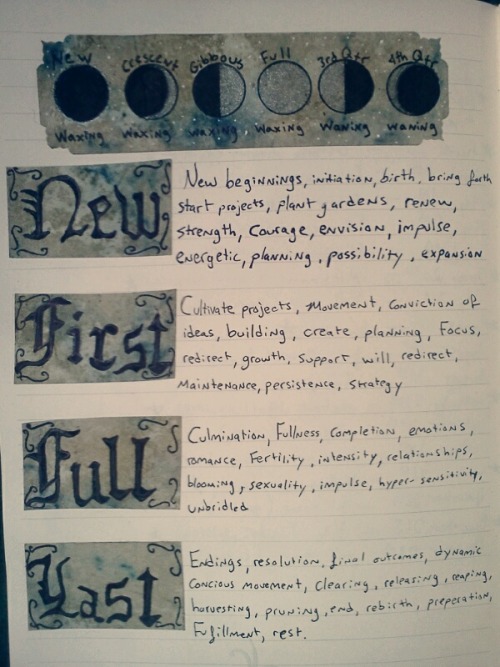 New Crescent Gibbous Full 3rd Qtr 4th Qtr
Waxing Waxing Waxing Waxing Wanixg waning
New
New beginnings, initiation, birth, bring forth
start projects, plant gardens, renew,
strength, Courage, envision, impulse,
energetic, planning, possibility, expansion
First
Cultivate projects, Movement, Conviction of
ideas, building, create, planning, Focus,
redirect, growth, Support, will, redirect,
Maintenance, persistence, Strategy
Full
Culmination, Fullness, Completion, emotions,
romance, Fertility, intensity, relationships,
blooming, sexuality, impulse, hyper-sensitivity,
unbridled
Last
Endings, resolution, final outcomes, dynamic
Concious movement, Clearing, releasing, reaping,
harvesting, pruning, end, rebirth, preperation,
Fufillment, rest.